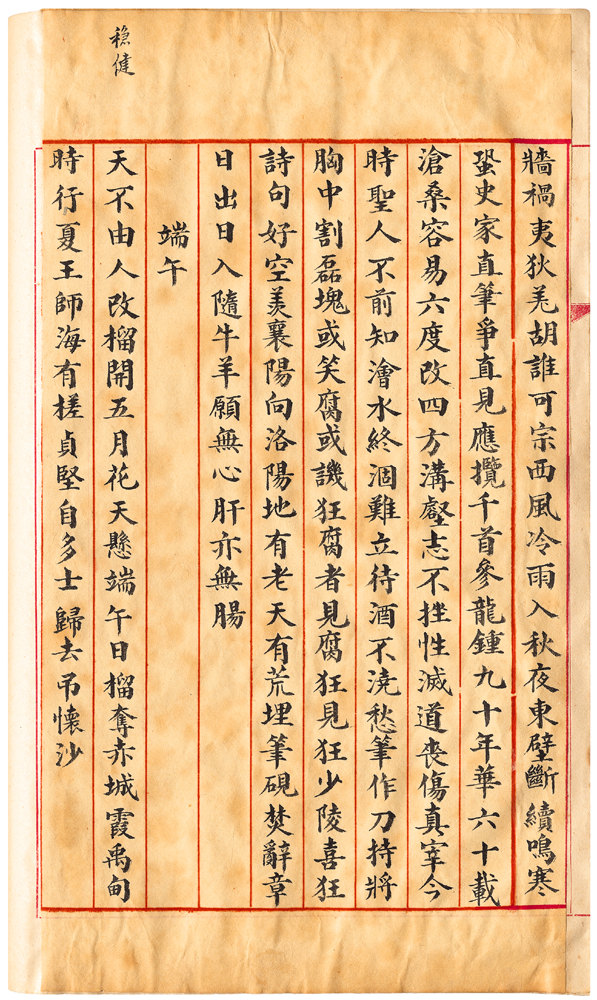 牆禍夷狄羌胡誰可宗西風冷雨入秋夜東壁斷續鳴寒
蛩史家直筆爭直見應攬千首參龍鍾九十年華六十載
滄桑容易六度改四方溝壑志不挫性滅道喪傷真宰今
時聖人不前知澮水終涸難立待酒不澆愁筆作刀持將
胸中割磊塊或笑腐或譏狂腐者見腐狂見狂少陵喜狂
詩句好空羨襄陽向洛陽地有老天有荒埋筆硯焚辭章
日出日入隨牛羊願無心肝亦無腸
端午
天不由人改榴開五月花天懸端午日榴奪赤城霞禹甸
時行夏王師海有槎貞堅自多士歸去吊懷沙
穩健